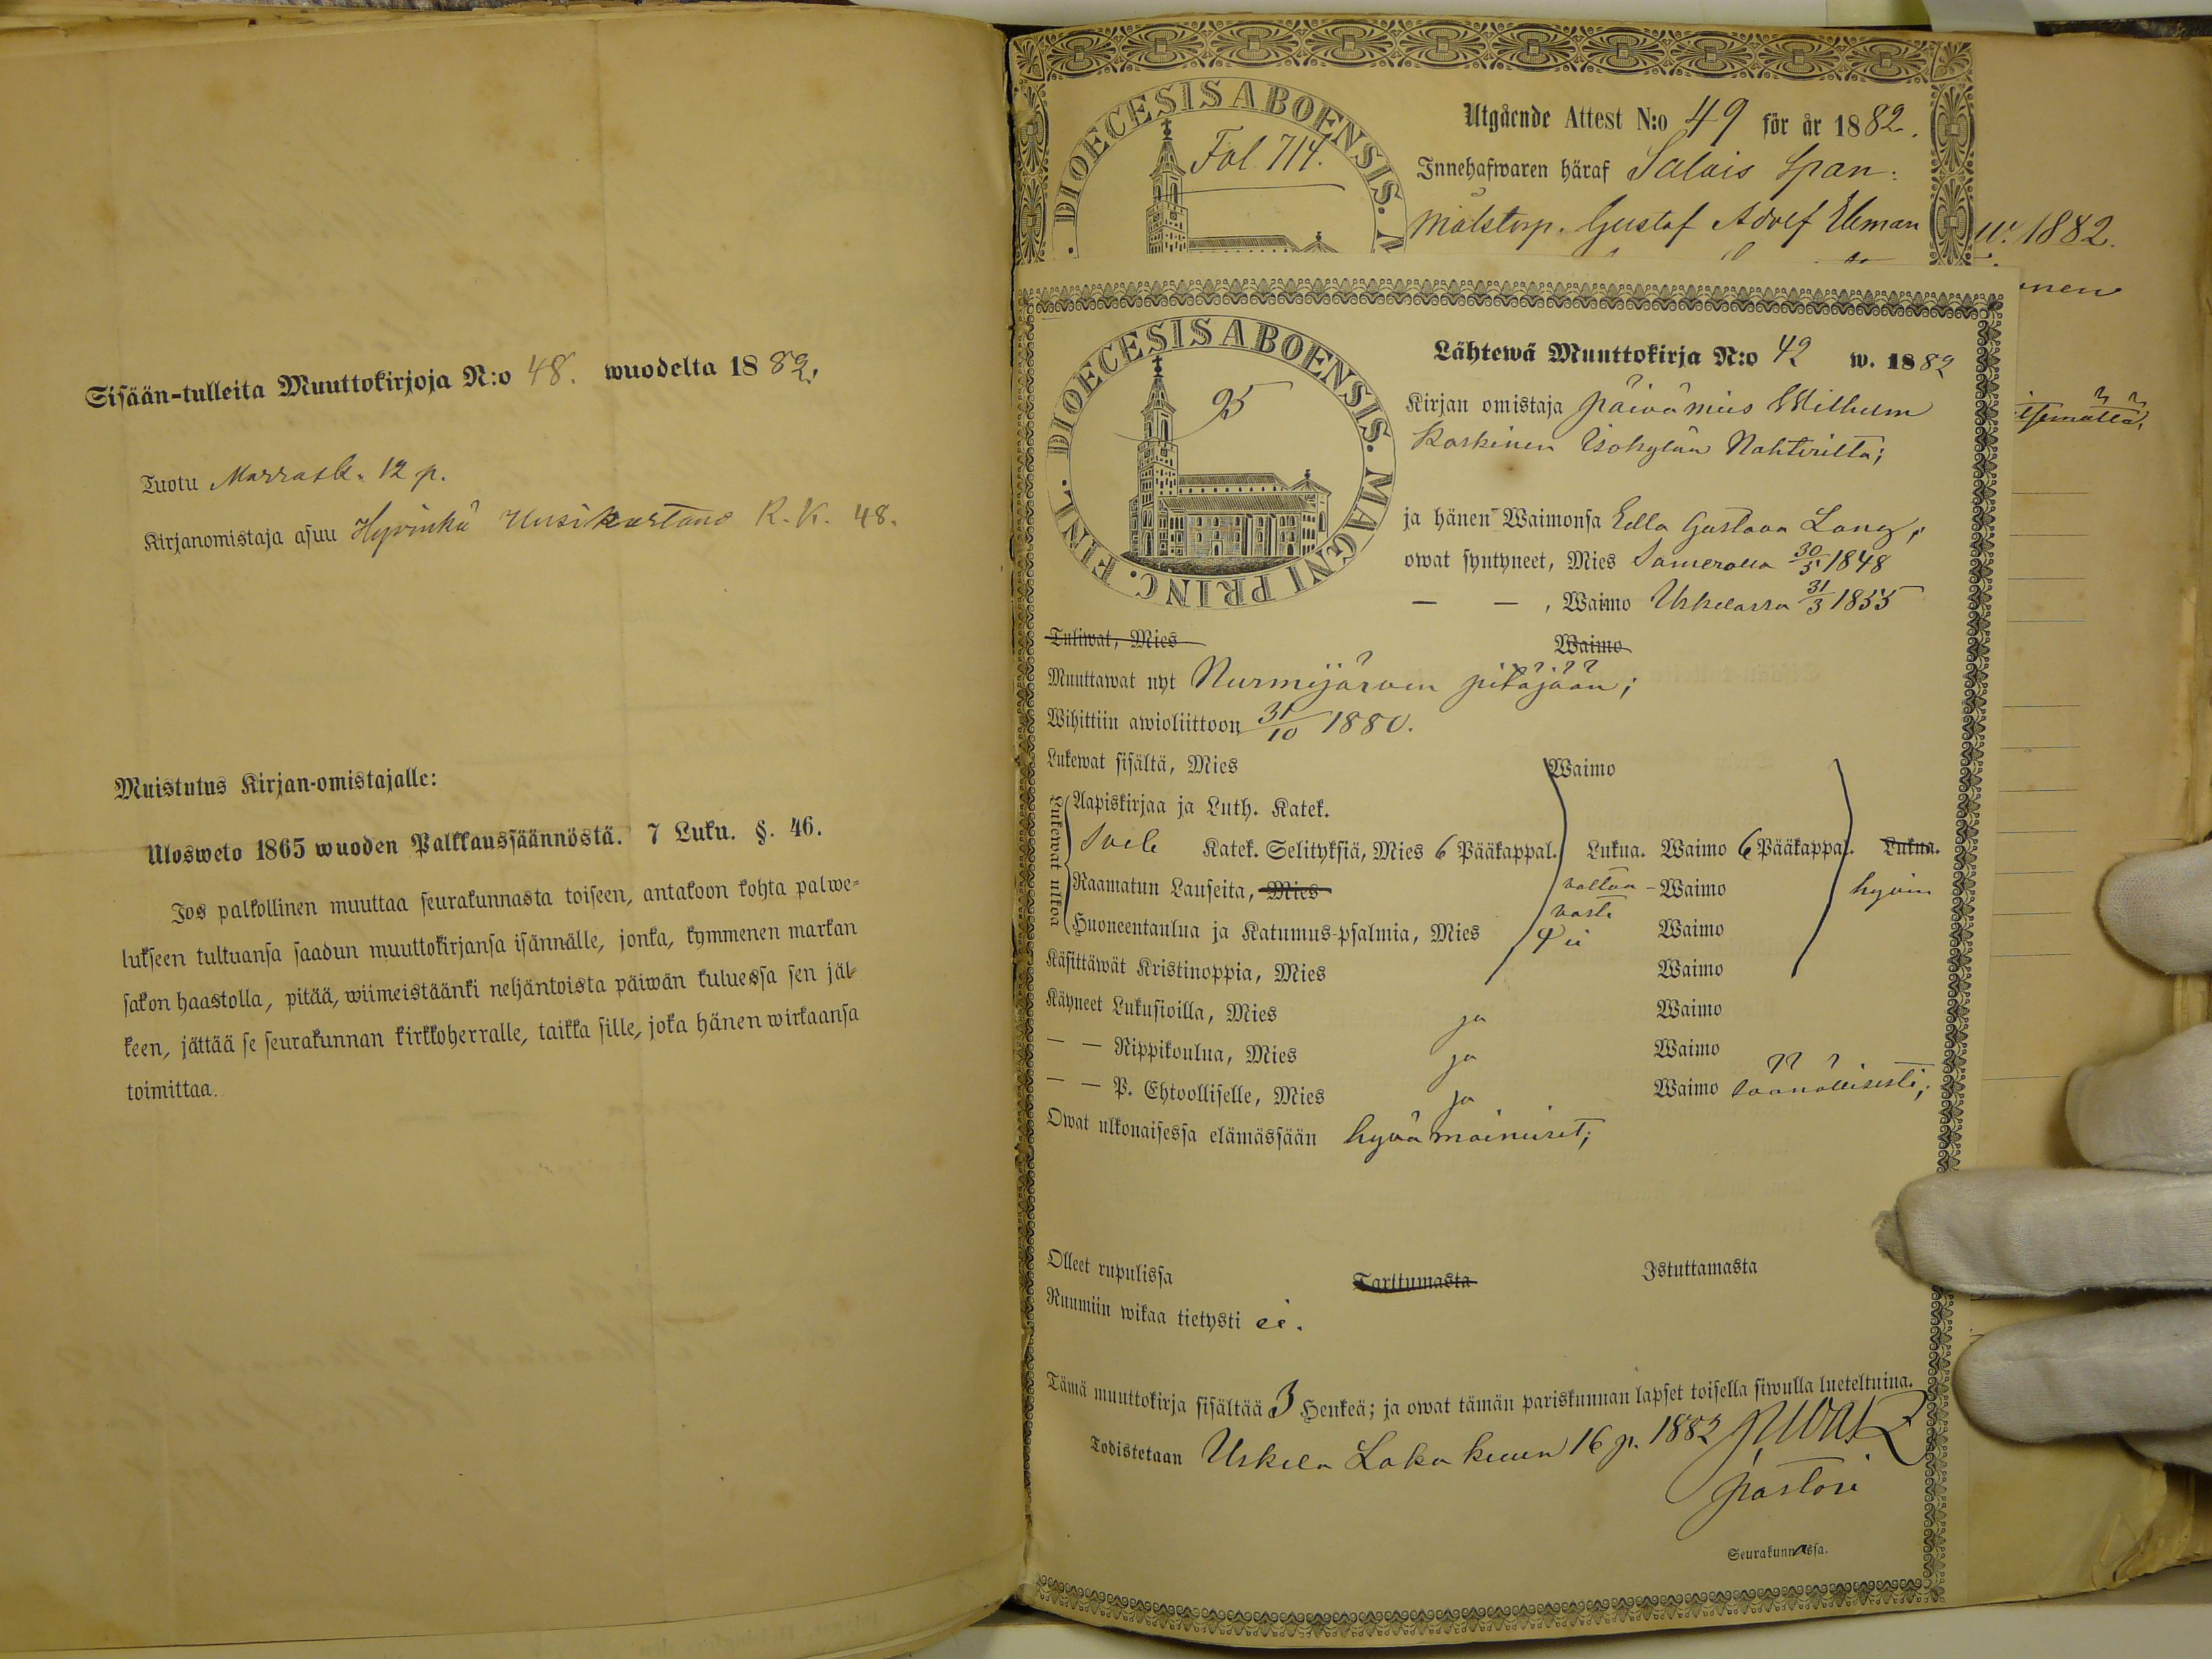 Sisään-tulleita Muuttokirjoja N:o 48. wuodelta 1882.
Tuotu Marrask. 12 p.
Kirjanomistaja asuu Hyvinkä Uusikartano R. K. 48.
Muistutus Kirjan-omistajalle:
Ulosweto 1865 wuoden Palkkaussäännöstä. 7 Luku. §. 46.
Jos palkollinen muuttaa seurakunnasta toiseen, antakoon kohta palwe-
lukseen tultuansa saadun muuttokirjansa isännälle, jonka, kymmenen markan
sakon haastolla, pitää, wiimeistäänki neljäntoista päiwän kuluessa sen jäl-
keen, jättää se seurakunnan kirkkoherralle, taikka sille, joka hänen wirkaansa
toimittaa.
DIOECESIS ABOENSIS. M
Fol 714.
Utgående Attest N:o 49 för år 1882.
Innehafwaren häraf Salais span-
målstorp. Gustaf Adolf Ekman
w. 1882.
nen
DIOECESIS ABOENSIS. MAGNI PRINC. FINL.
95
Lähtewä Muuttokirja N:o 42 w. 1882
Kirjan omistaja päivämies Wilhelm
Koskinen Isokylän Nahtirilta;
ja hänen Waimonsa Eella Gustava Lang;
owat syntyneet, Mies Somerolla 30/5 1848
— — , Waimo Uskelassa 31/3 1855
Tuliwat, Mies Waimo
Muuttawat nyt Nurmijärven pitäjään;
Wihittiin awioliittoon 31/10 1880.
Lukewat sisältä, Mies Waimo
Lukewat ulkoa
Aapiskirjaa ja Luth. Katek.
Katek. Selityksiä, Mies 6 Pääkappal. Lukua. Waimo 6 Pääkappal. Lukua.
Raamatun Lauseita, Mies Waimo hyvin
Huoneentaulua ja Katumus-psalmia, Mies Waimo
Käsittäwät Kristinoppia, Mies Waimo
Käyneet Lukusioilla, Mies ja Waimo
— — Rippikoulua, Mies ja Waimo
— — P. Ehtoolliselle, Mies ja Waimo säännöllisesti;
Owat ulkonaisessa elämässään hyvämainiset;
Olleet rupulissa Tarttumasta Istuttamasta
Ruumiin wikaa tietysti ei.
Tämä muuttokirja sisältää 3 Henkeä; ja owat tämän pariskunnan lapset toisella siwulla lueteltuina.
Todistetaan Uskela Loka kuun 16 p. 1882
pastori
Seurakunnassa.